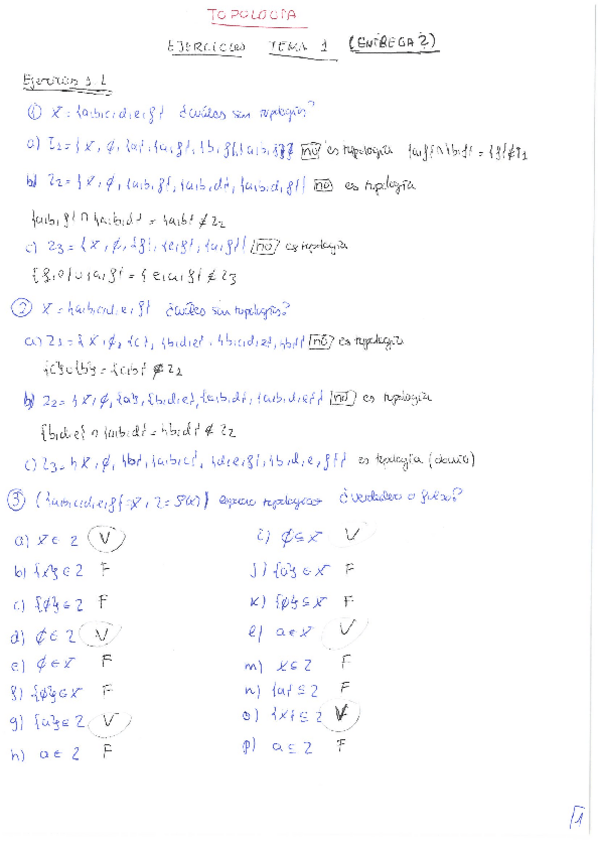 TOPOLOGÍA
EJERCICIOS TEMA 1 (ENTREGA 2)
Ejercicios 1.1
① X = {a,b,c,d,e,f} ¿cuáles son topologías?
a) τ1 = { X, ∅, {a}, {a,f}, {b,f}, {a,b,f}} no es topología {a,f} ∩ {b,f} = {f} ∉ τ1
b) τ2 = { X, ∅, {a,b,f}, {a,b,d}, {a,b,d,f}} no es topología
{a,b,f} ∩ {a,b,d} = {a,b} ∉ τ2
c) τ3 = { X, ∅, {f}, {e,f}, {a,f}} no es topología
{f,e} ∪ {a,f} = {e,a,f} ∉ τ3
② X = {a,b,c,d,e,f} ¿cuáles son topologías?
a) τ1 = { X, ∅, {c}, {b,d,e}, {b,c,d,e}, {b}} no es topología
{c} ∪ {b} = {c,b} ∉ τ2
b) τ2 = { X, ∅, {a}, {b,d,e}, {a,b,d}, {a,b,d,e}} no es topología
{b,d,e} ∩ {a,b,d} = {b,d} ∉ τ2
c) τ3 = { X, ∅, {b}, {a,b,c}, {d,e,f}, {b,d,e,f}} es topología
③ ({a,b,c,d,e,f} = X, τ = P(X)) espacio topológico ¿verdadero o falso?
a) X ∈ τ V
b) {X} ∈ τ F
c) {∅} ∈ τ F
d) ∅ ∈ τ V
e) ∅ ∈ X F
f) {∅} ∈ X F
g) {a} ∈ τ V
h) a ∈ τ F
i) ∅ ⊆ X V
j) {a} ∈ X F
k) {∅} ⊆ X F
l) a ∈ X V
m) X ⊆ τ F
n) {a} ⊆ τ F
o) {X} ⊆ τ V
p) a ⊆ τ F
1